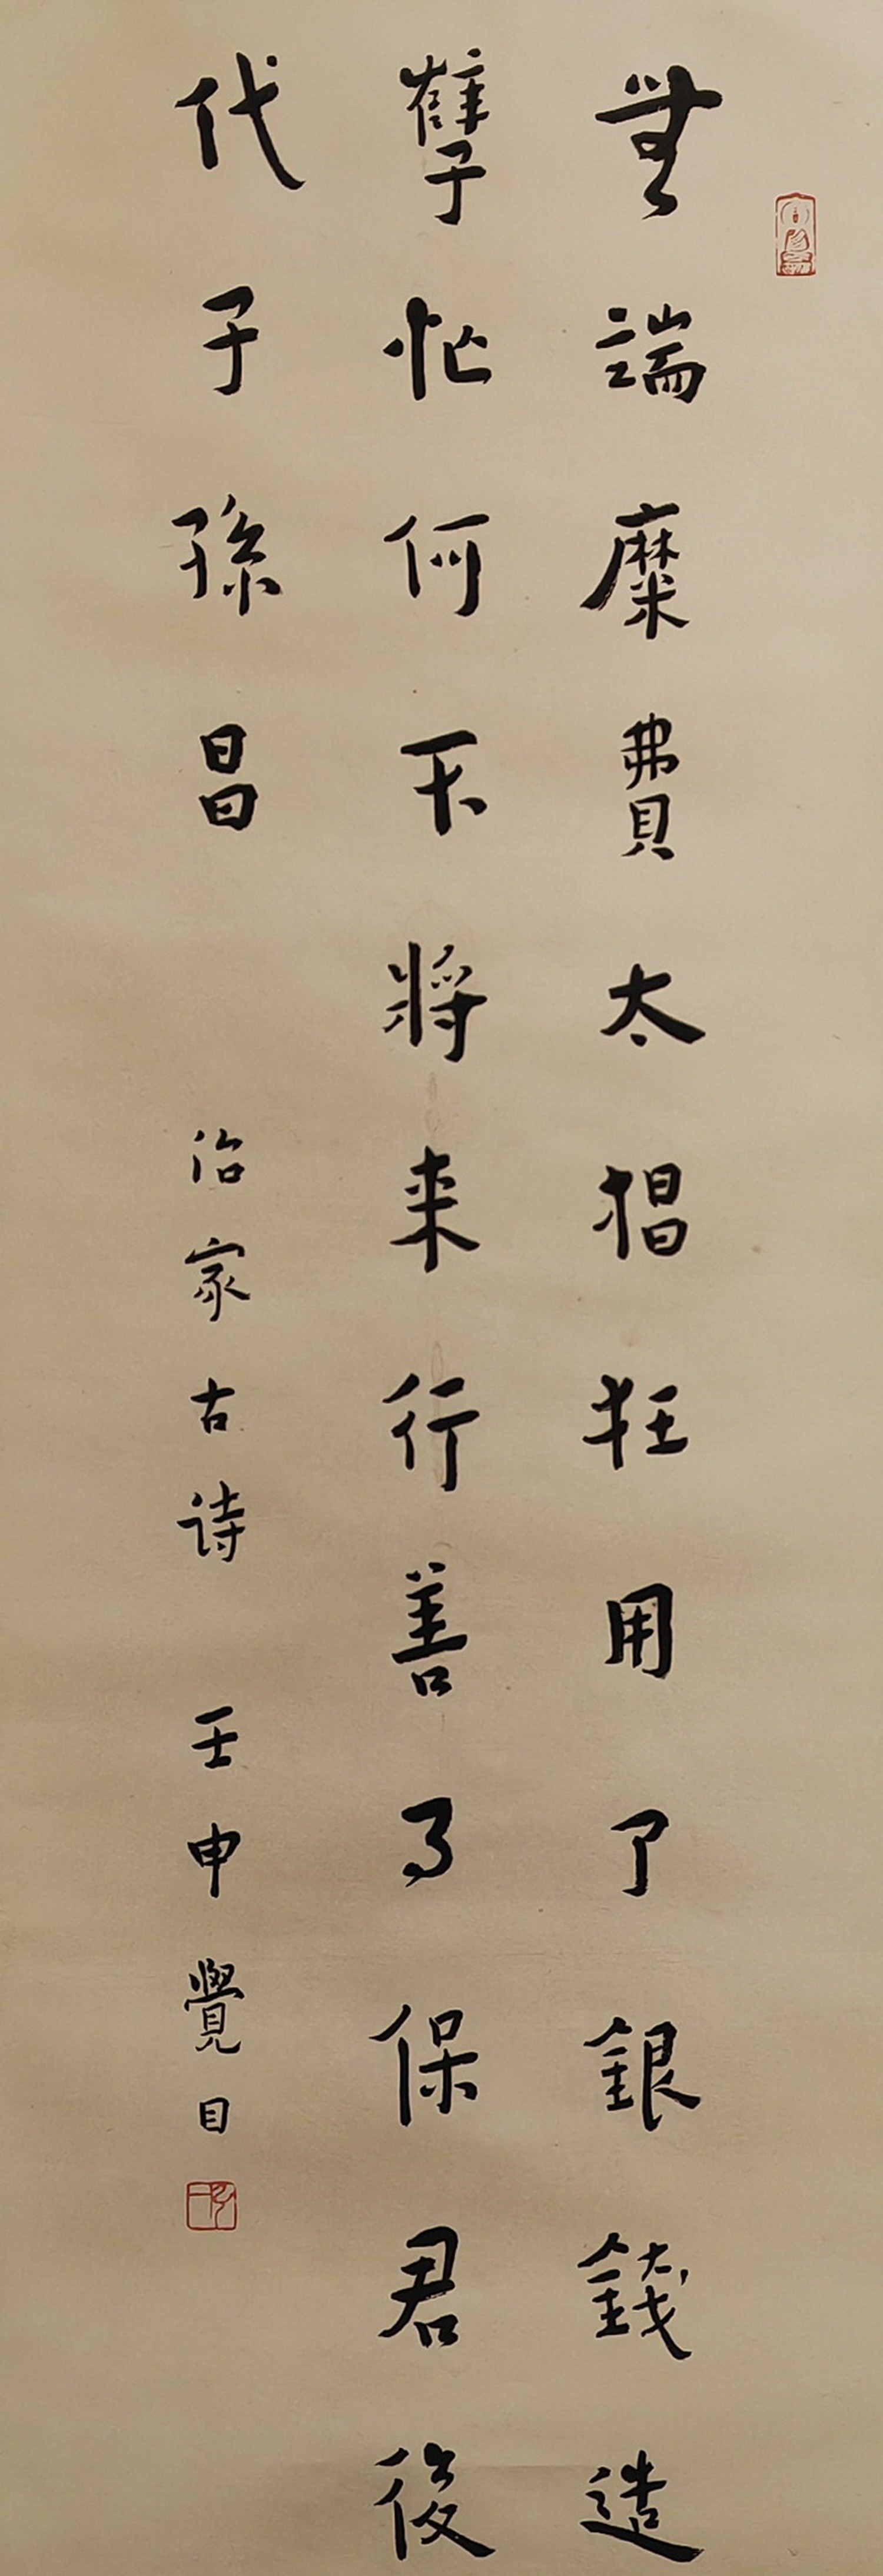 無端糜費太猖狂用了銀錢造
孽忙何不將来行善了保君後
代子孫昌
治家古诗 壬申 覺目